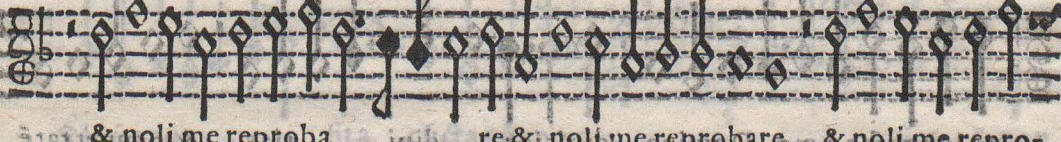 & noli me reproba re & noli me reprobare & noli me repro-